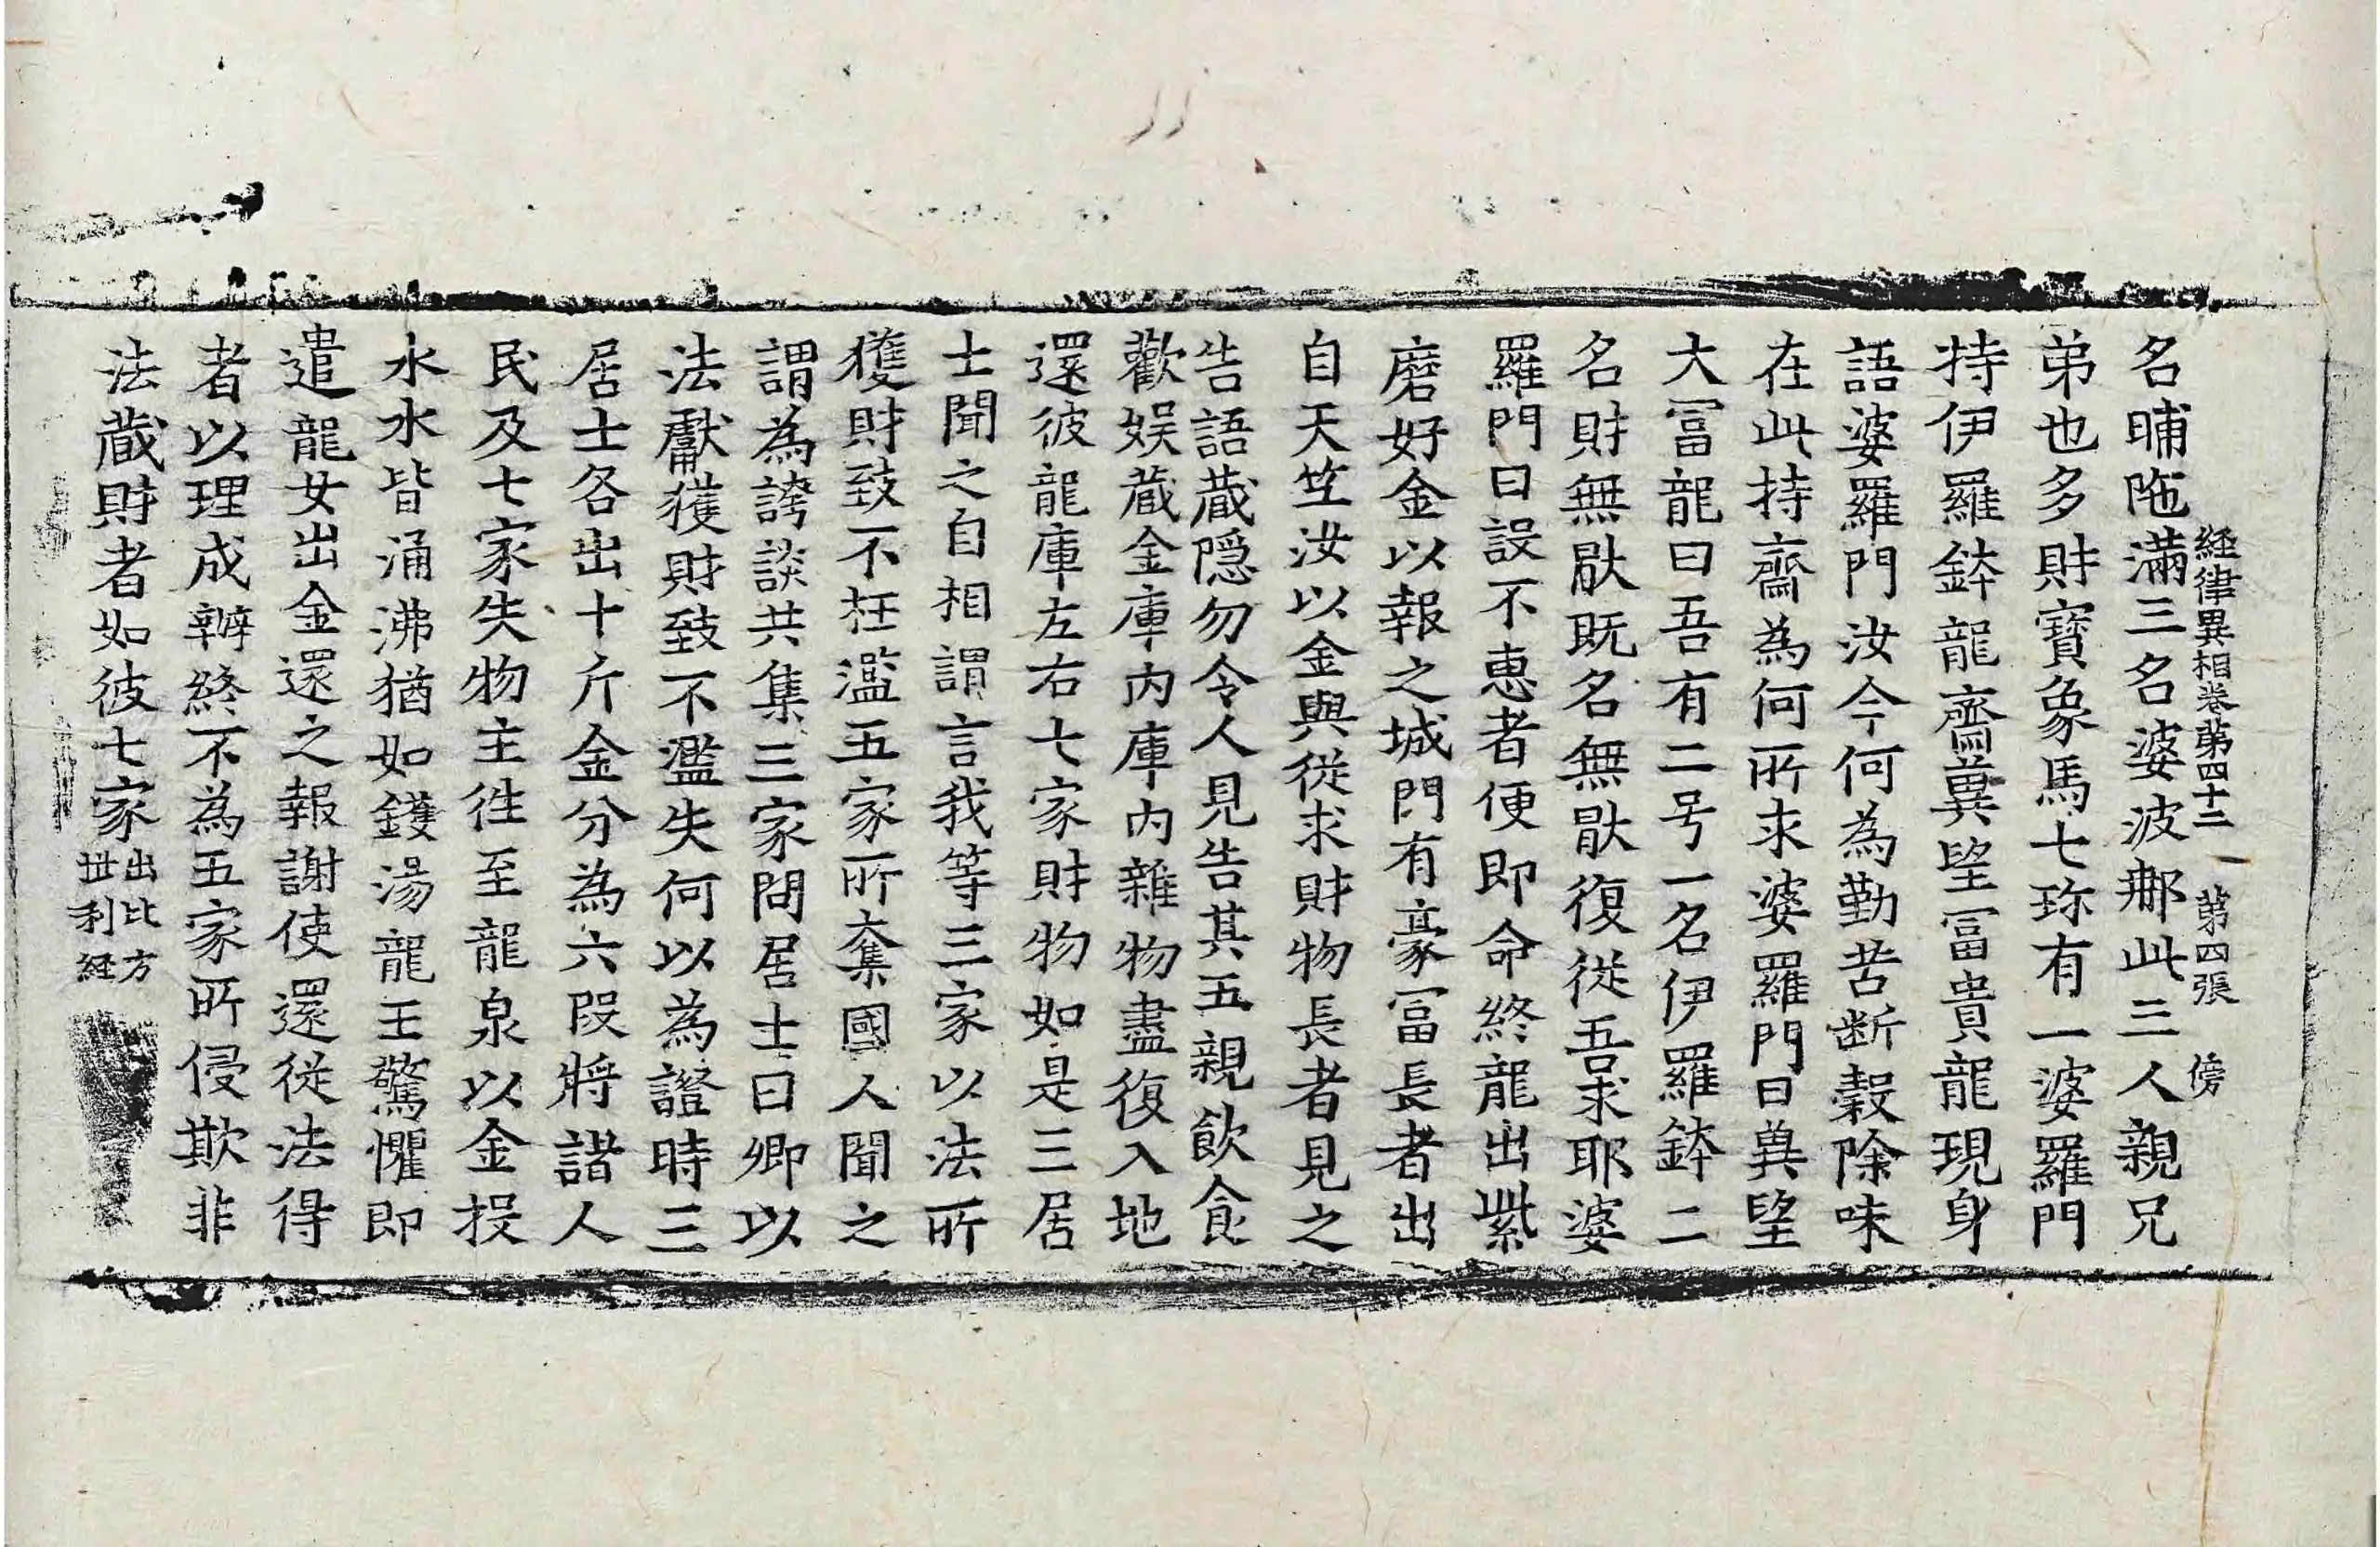 経律異相卷第四十二 第四張 傍
名晡陁滿三名婆波𨚗此三人親兄
弟也多財寶象馬七珎有一婆羅門
持伊羅鉢龍齋兾望冨貴龍現身
語婆羅門汝今何為勤苦断穀除味
在此持齋為何所求婆羅門曰兾望
大冨龍曰吾有二号一名伊羅鉢二
名財無猒既名無猒復從吾求耶婆
羅門曰設不惠者便即命終龍出紫
磨好金以報之城門有豪冨長者出
自天竺汝以金與從求財物長者見之
告語蔵隠勿令人見告其五親飲食
歡娱蔵金庫内庫内雜物盡復入地
還彼龍庫左右七家財物如是三居
士聞之自相謂言我等三家以法所
獲財致不枉濫五家所奪國人聞之
謂為誇談共集三家問居士曰卿以
法獻獲財致不濫失何以為證時三
居士各出十斤金分為六段將諸人
民及七家失物主徃至龍泉以金投
水水皆涌沸猶如鑊湯龍王驚懼即
遣龍女出金還之報謝使還從法得
者以理成辦終不為五家所侵欺非
法蔵財者如彼七家出比方世利経